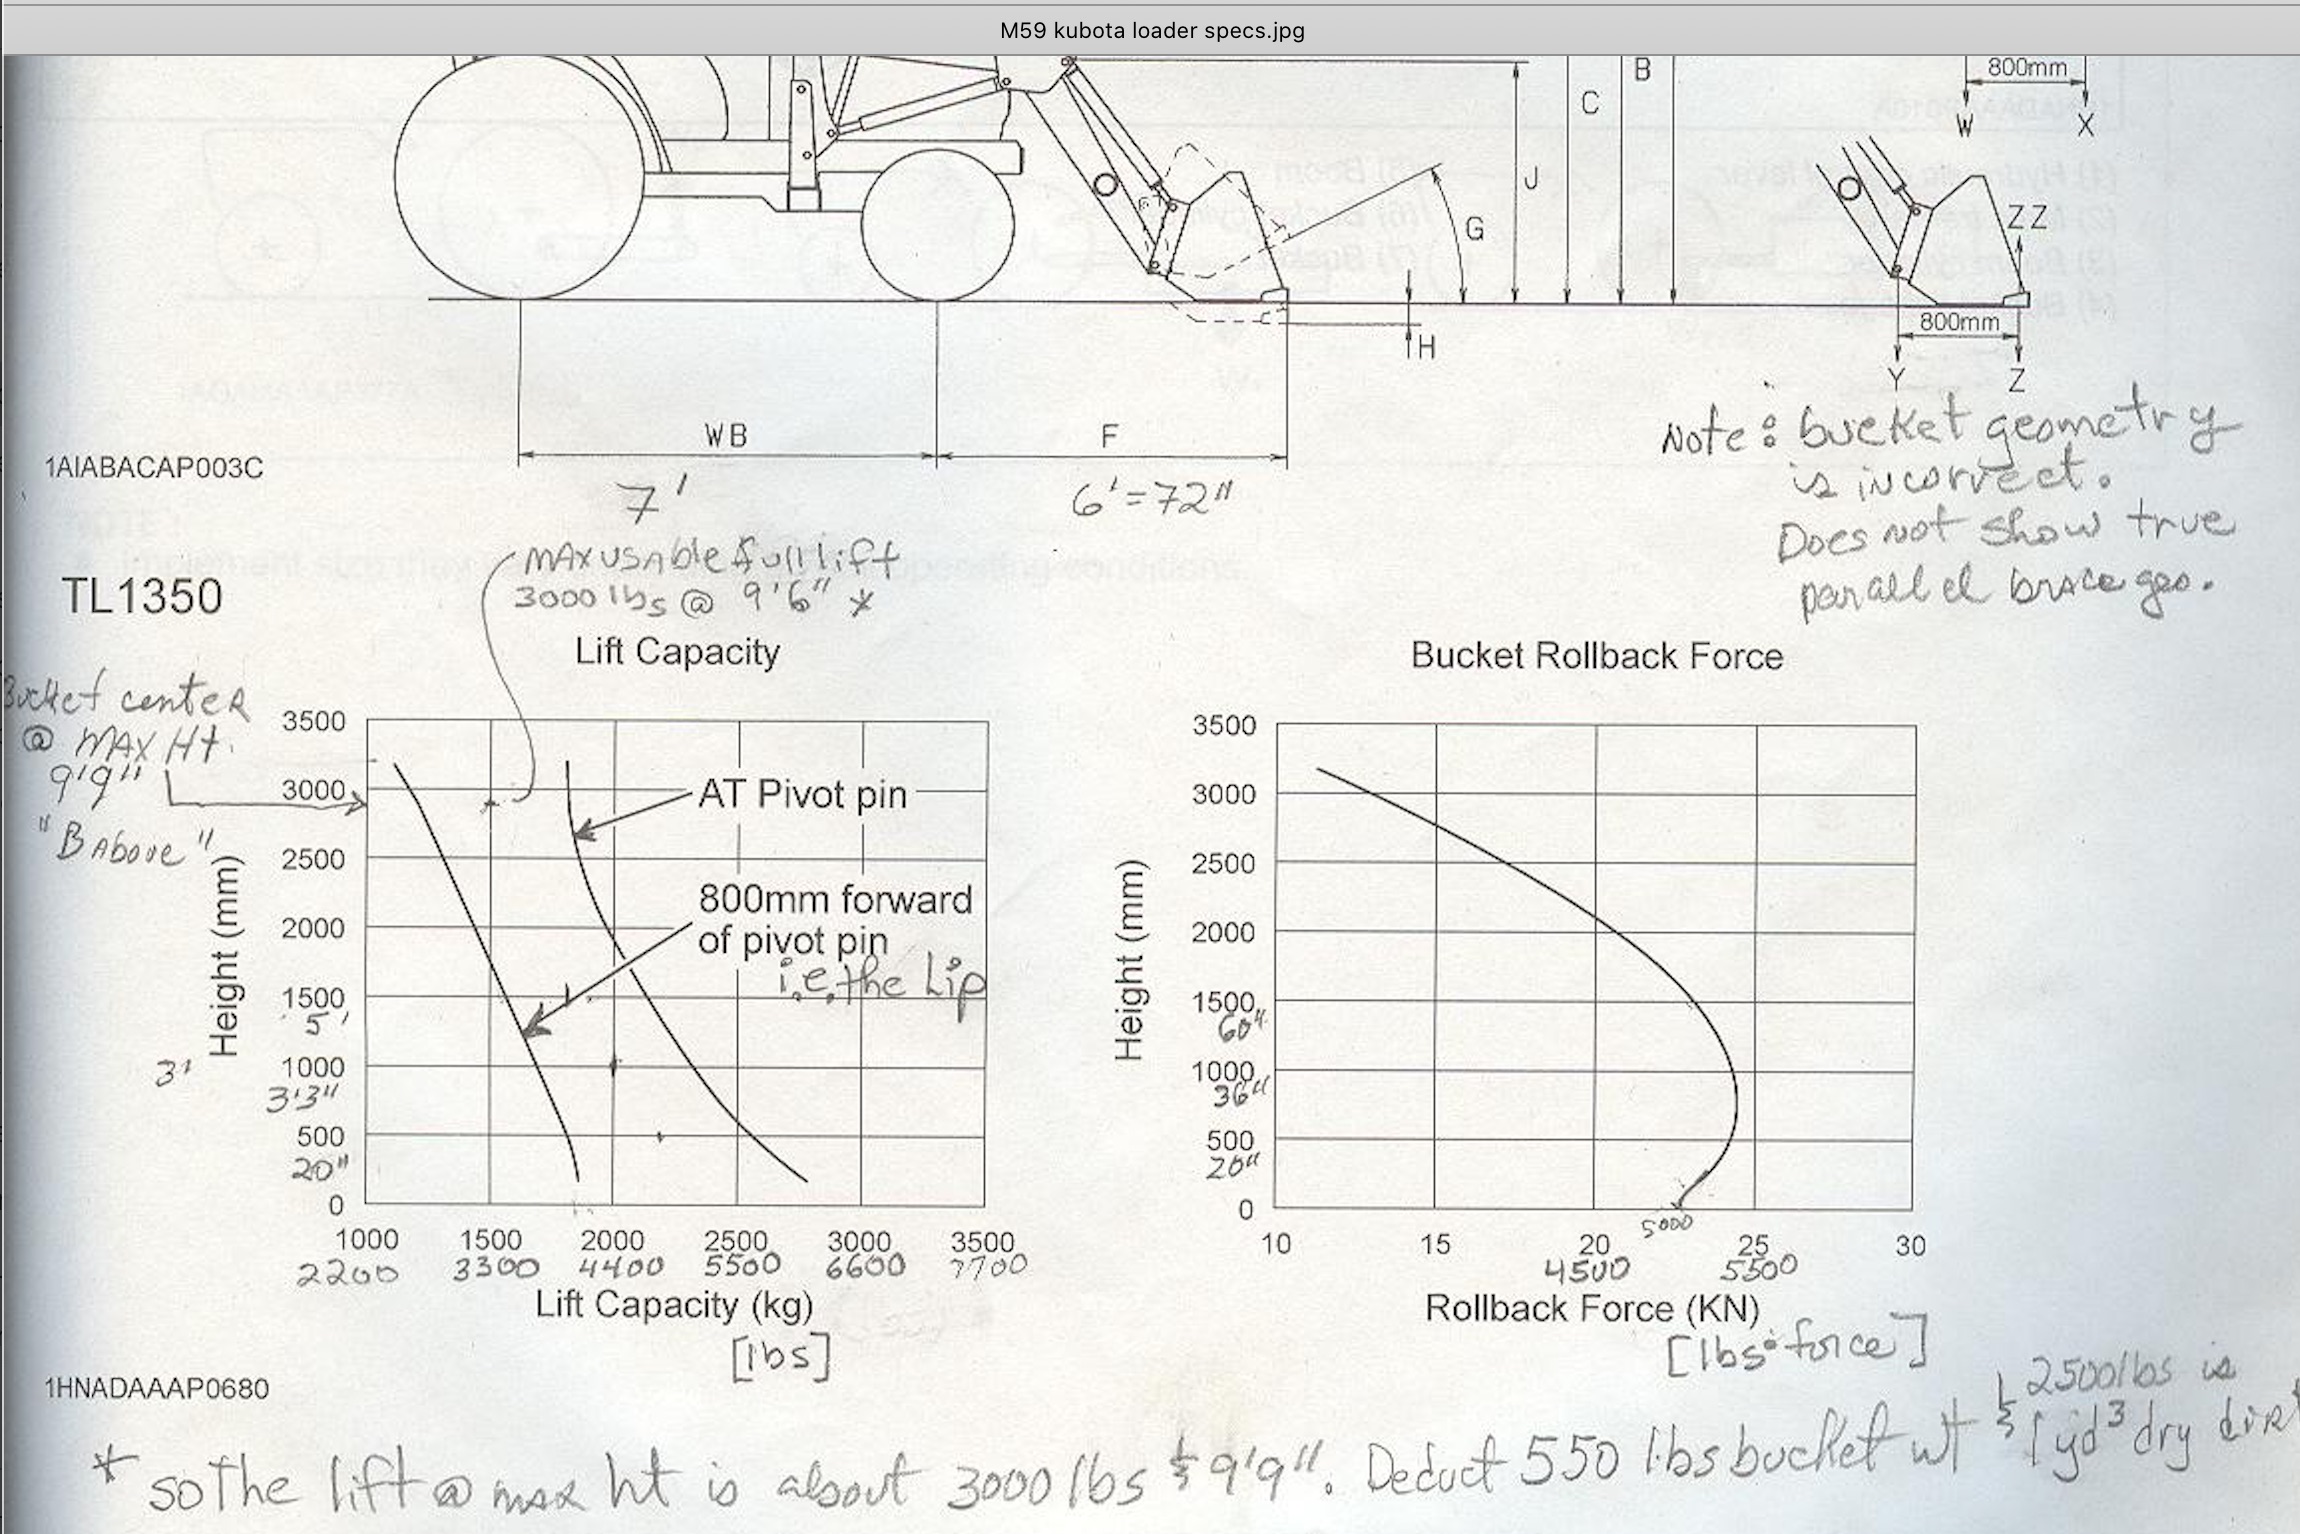 M59 kubota loader specs.jpg
B
800mm
C
W X
J
G
ZZ
H
800mm
Y Z
WB
F
1AIABACAP003C
7'
6'=72"
Note: bucket geometry
is incorrect.
Does not show true
parallel brace geo.
MAX USABle full lift
3000 lbs @ 9'6" *
TL1350
Lift Capacity
Bucket center
@ MAX Ht.
9'9"
"B Above"
Height (mm)
3500
3000
2500
2000
1500
5'
3'
1000
3'3"
500
20"
0
AT Pivot pin
800mm forward
of pivot pin
i.e. the Lip
1000 1500 2000 2500 3000 3500
2200 3300 4400 5500 6600 7700
Lift Capacity (kg)
[lbs]
Bucket Rollback Force
Height (mm)
3500
3000
2500
2000
1500
60"
1000
36"
500
20"
0
5000
10 15 20 25 30
4500 5500
Rollback Force (KN)
[lbs·force]
1HNADAAAP0680
2500 lbs is
* so The lift @ max ht is about 3000 lbs 9'9". Deduct 550 lbs bucket wt 1 yd3 dry dirt